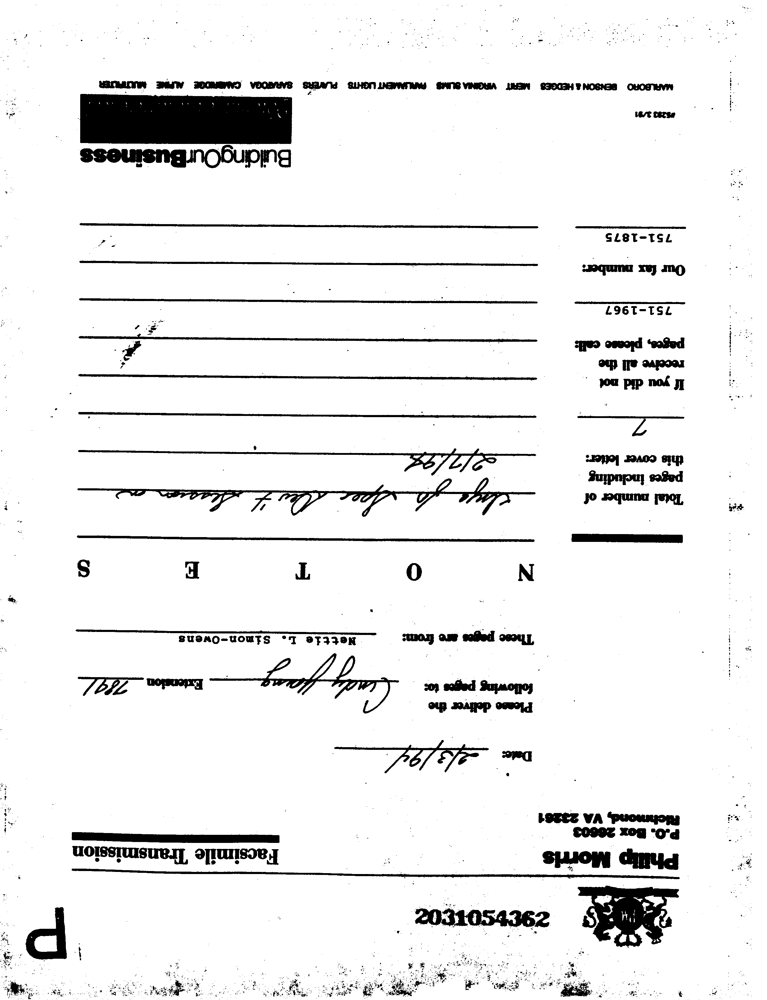 P
2031054362
Philip Morris
P.O. Box 26603
Richmond, VA 23261
Facsimile Transmission
Date: 2/3/94
Please deliver the
following pages to: Cindy Young Extension 7891
These pages are from: Nettie L. Simon-Owens
N O T E S
Total number of
pages including
this cover letter:
7
If you did not
receive all the
pages, please call:
751-1967
Our fax number:
751-1875
Spec Dev't Session on
2/7/94
BuildingOurBusiness
#5293 3/91
MARLBORO BENSON & HEDGES MERIT VIRGINIA SLIMS PARLIAMENT LIGHTS PLAYERS SARATOGA CAMBRIDGE ALPINE MULTIFILTER